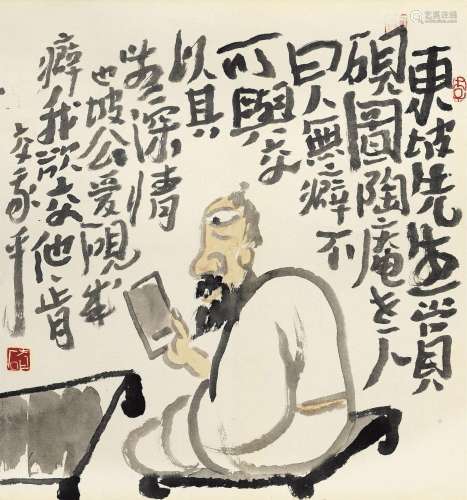 東坡先生賞
硯圖陶庵老人
曰人無癖不
可與交
以其
無深情
也坡公愛硯成
癖我欲交他〻肯
交我乎